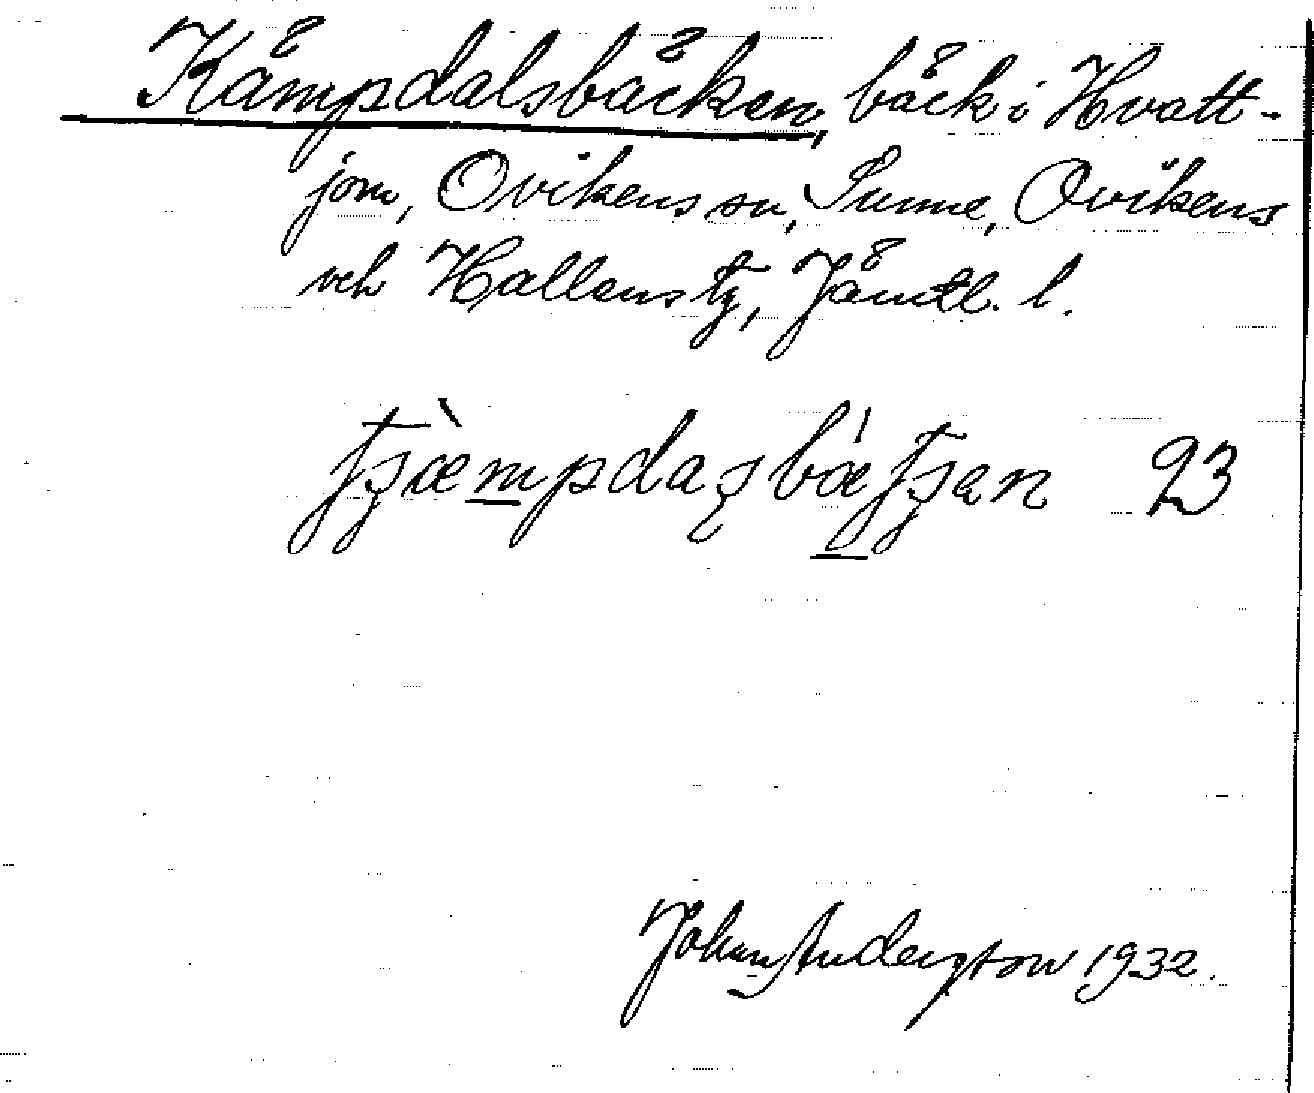 Kämpdalsbäcken, bäck i Hvatt-
jom, Ovikens sn, Sunne, Ovikens
och Hallens tg, Jämtl. l.
23
Johan Anderzton 1932.